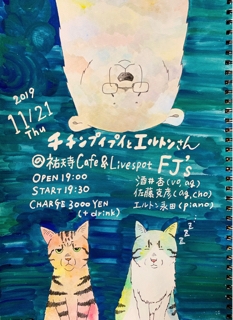 2019
11/21
Thu
チチンプイプイとエルトンさん
@祐天寺 Cafe & Livespot FJ's
OPEN 19:00
START 19:30
CHARGE 3000 YEN
(+ drink)
酒井杏 (vo, ag)
佐藤克彦 (ag, cho)
エルトン永田 (piano)
z z z